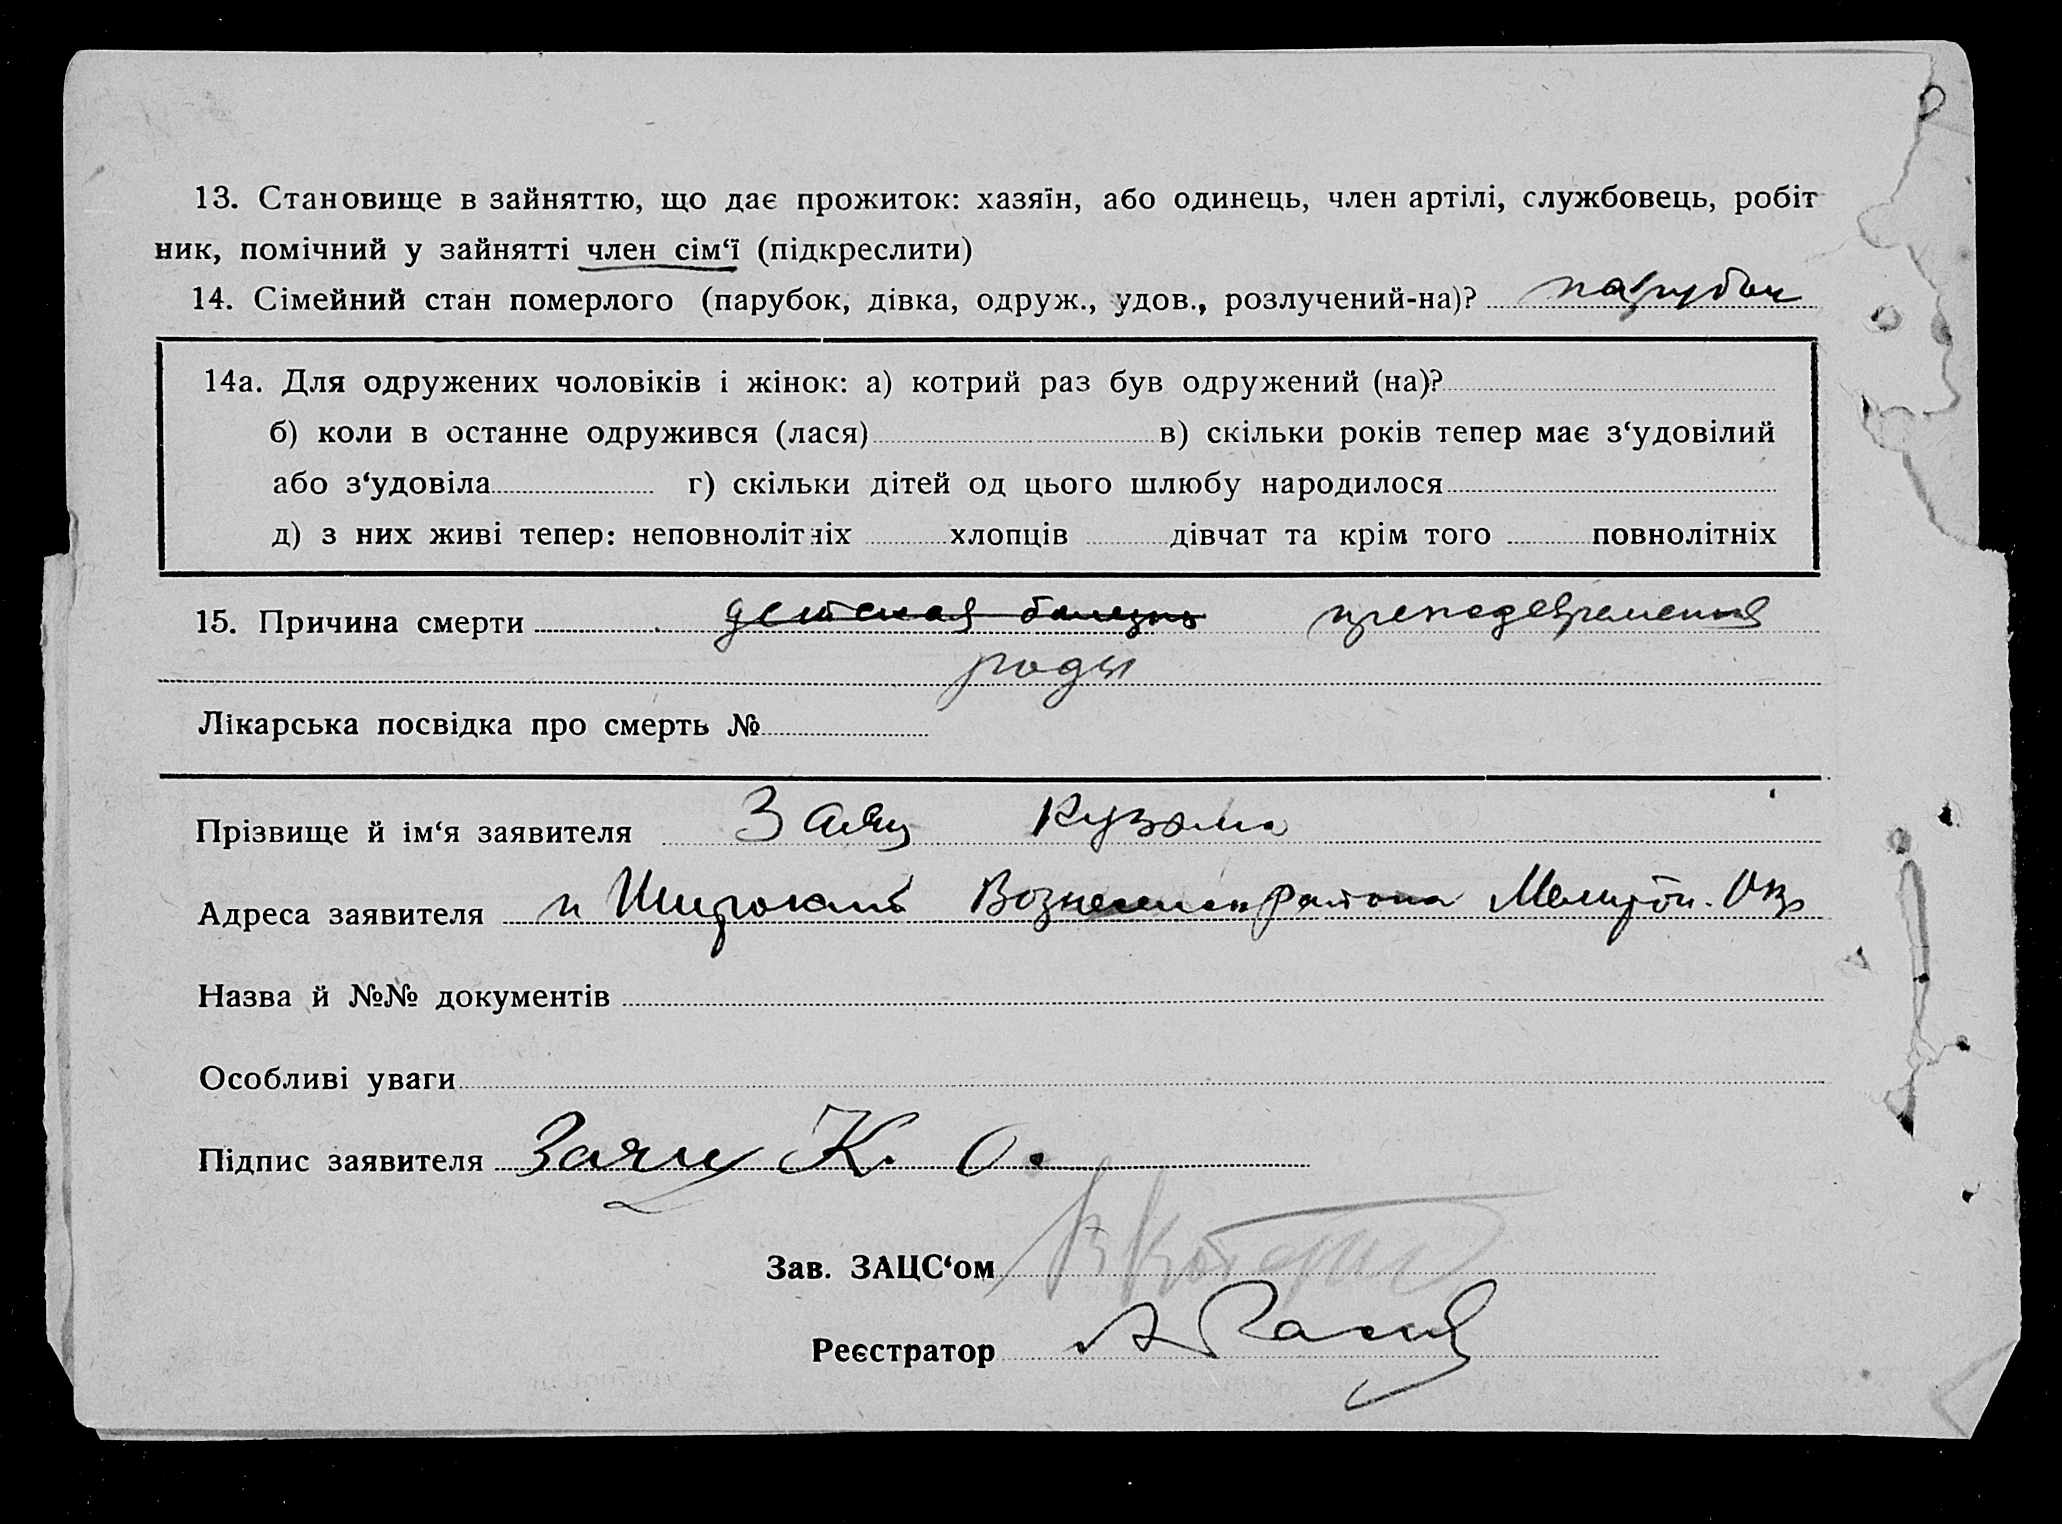 13. Становище в зайняттю, що дає прожиток: хазяїн, або одинець, член артілі, службовець, робіт
ник, помічний у зайнятті член сім‘ї (підкреслити)
14. Сімейний стан померлого (парубок, дівка, одруж., удов., розлучений-на)? парубок
14а. Для одружених чоловіків і жінок: а) котрий раз був одружений (на)?
б) коли в останне одружився (лася) в) скільки років тепер має з‘удовілий
або з‘удовіла г) скільки дітей од цього шлюбу народилося
д) з них живі тепер: неповнолітніх хлопців дівчат та крім того повнолітніх
15. Причина смерти детская болезнь
роды
Лікарська посвідка про смерть №
Прізвище й ім‘я заявителя Заяц Кузьма
Адреса заявителя п Широкий Вознесенск района Мелитоп. Окр
Назва й №№ документів
Особливі уваги
Підпис заявителя Заяц К. О.
Зав. ЗАЦС‘ом
Реєстратор